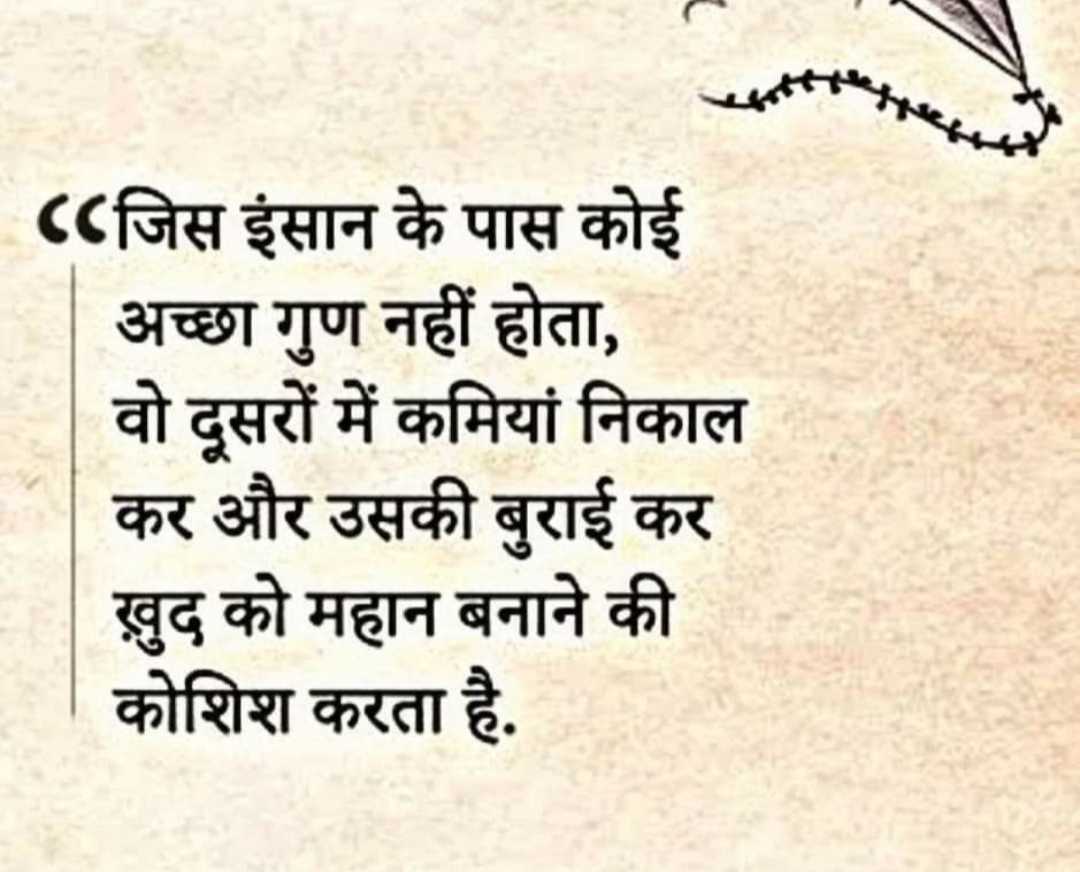 “जिस इंसान के पास कोई
अच्छा गुण नहीं होता,
वो दूसरों में कमियां निकाल
कर और उसकी बुराई कर
ख़ुद को महान बनाने की
कोशिश करता है.